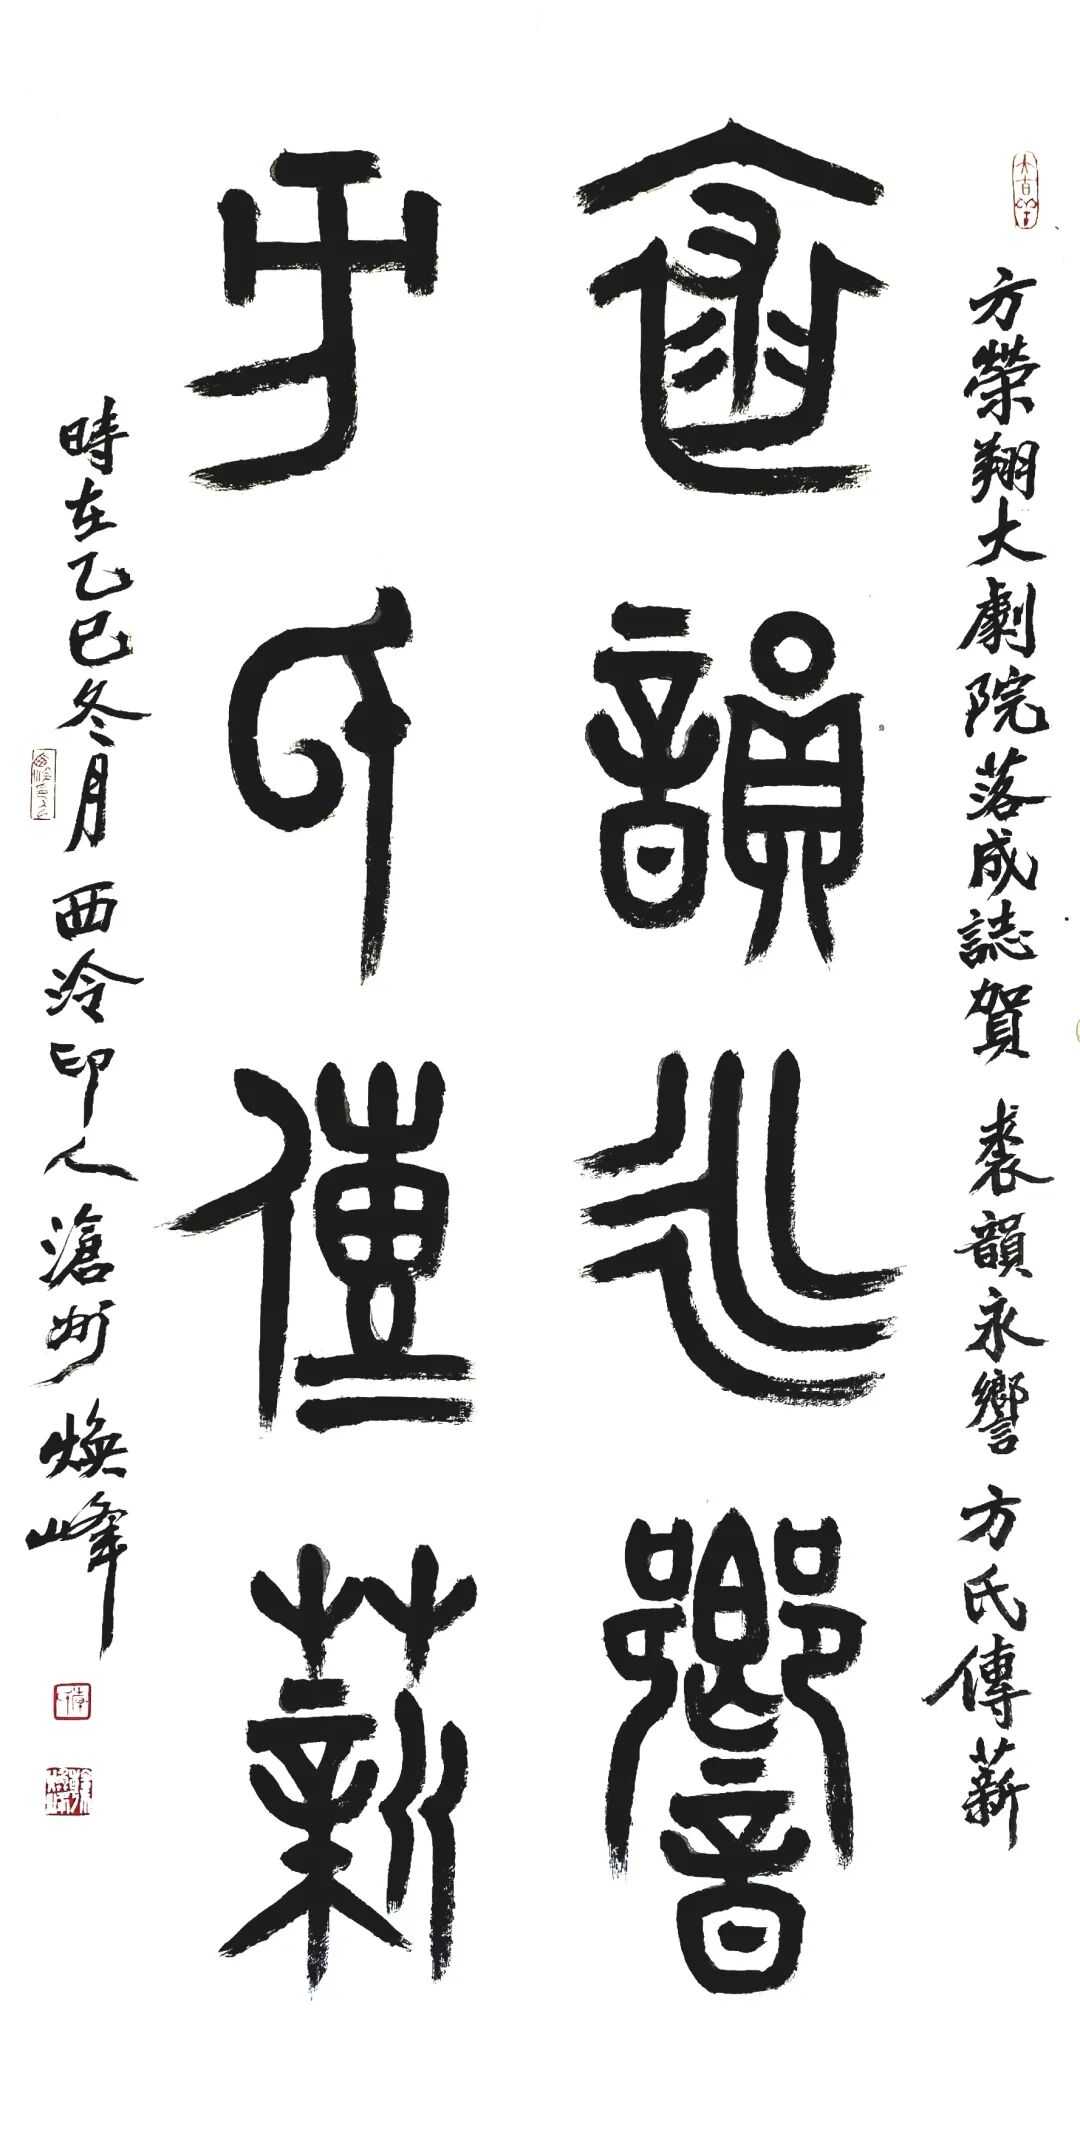 方榮翔大劇院落成誌賀 裘韻永響 方氏傳薪
裘韻永響
方氏傳薪
時在乙巳冬月 西泠印人 滄州 煥峰